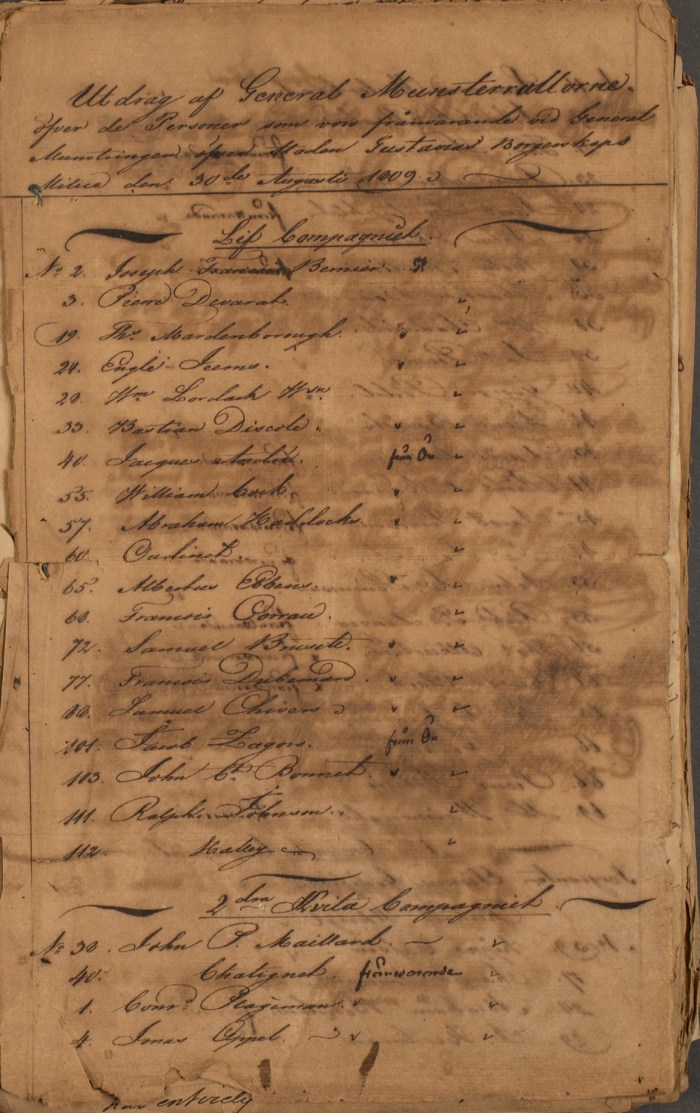 Utdrag af General Munsterrullorne
öfver de Personer som voro frånvarande vid General
Munstringen öfver Staden Gustavias Borgerskaps
Milice den 30de Augusti 1809
Lif Compagniet.
No 2. Joseph Bernier.
3. Pierre Devarah
19. Thos Mardenborough.
24. Engle
28. Wm
33. Bastian Discole.
40. Jacques från Ön
55. William Cock
57. Abraham Haddocks
60. Oudinot.
65. Albertus Ebbens
68. Francois
72. Samuel
77. Francois
88. Samuel Chivers
101. Jacob Zagers. från Ön
103. John Bt Bonnet.
111. Ralph Johnson.
112. Halley
2dra Hvita Compagniet
No 30. John P. Maillard
40. Chatignet. frånvarande
1. Conrd Plageman.
4. Jonas Appel.
entirely